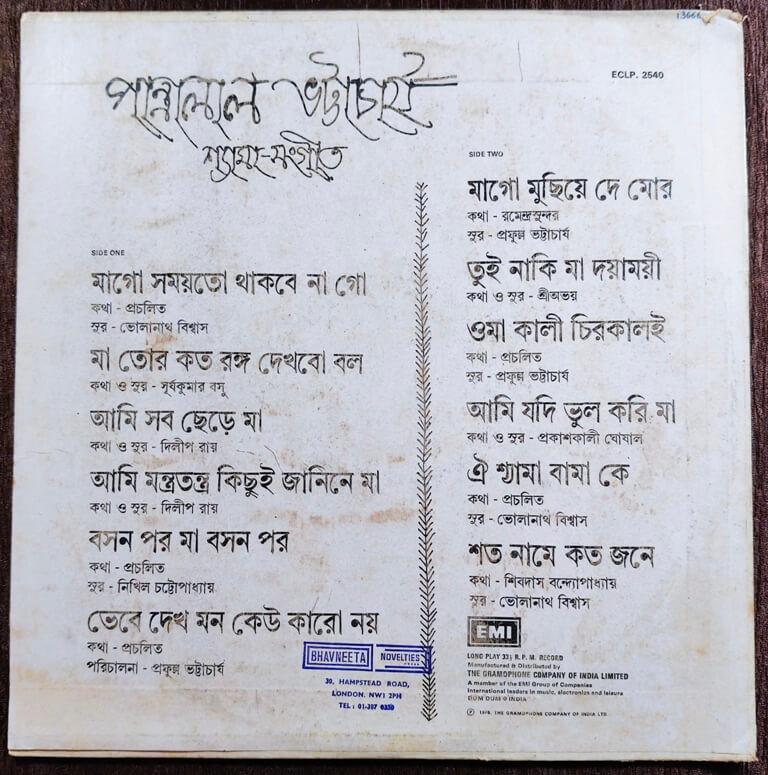 13666
ECLP. 2540
পান্নালাল ভট্টাচার্য
শ্যামা-সংগীত
SIDE ONE
মাগো সময়তো থাকবে না গো
কথা - প্রচলিত
সুর - ভোলানাথ বিশ্বাস
মা তোর কত রঙ্গ দেখবো বল
কথা ও সুর - সূর্যকুমার বসু
আমি সব ছেড়ে মা
কথা ও সুর - দিলীপ রায়
আমি মন্ত্রতন্ত্র কিছুই জানিনে মা
কথা ও সুর - দিলীপ রায়
বসন পর মা বসন পর
কথা - প্রচলিত
সুর - নিখিল চট্টোপাধ্যায়
ভেবে দেখ মন কেউ কারো নয়
কথা - প্রচলিত
পরিচালনা - প্রফুল্ল ভট্টাচার্য
SIDE TWO
মাগো মুছিয়ে দে মোর
কথা - রমেন্দ্রসুন্দর
সুর - প্রফুল্ল ভট্টাচার্য
তুই নাকি মা দয়াময়ী
কথা ও সুর - শ্রীঅভয়
ওমা কালী চিরকালই
কথা - প্রচলিত
সুর - প্রফুল্ল ভট্টাচার্য
আমি যদি ভুল করি মা
কথা ও সুর - প্রকাশকালী ঘোষাল
ঐ শ্যামা বামা কে
কথা - প্রচলিত
সুর - ভোলানাথ বিশ্বাস
শত নামে কত জনে
কথা - শিবদাস বন্দ্যোপাধ্যায়
সুর - ভোলানাথ বিশ্বাস
EMI
LONG PLAY 33⅓ R. P. M. RECORD
Manufactured & Distributed by
THE GRAMOPHONE COMPANY OF INDIA LIMITED
A member of the EMI Group of Companies
International leaders in music, electronics and leisure
DUM DUM INDIA
Ⓟ 1976, THE GRAMOPHONE COMPANY OF INDIA LTD.
BHAVNEETA NOVELTIES
30, HAMPSTEAD ROAD,
LONDON. NW1 2PH
TEL: 01-387